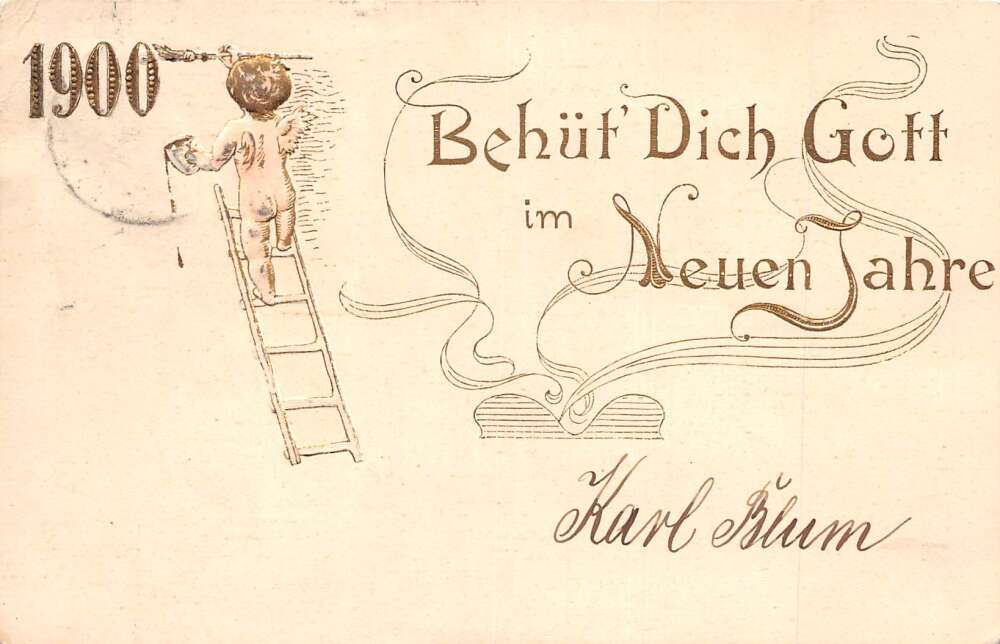 1900
Behüt' Dich Gott
im
Neuen Jahre
Karl Blum